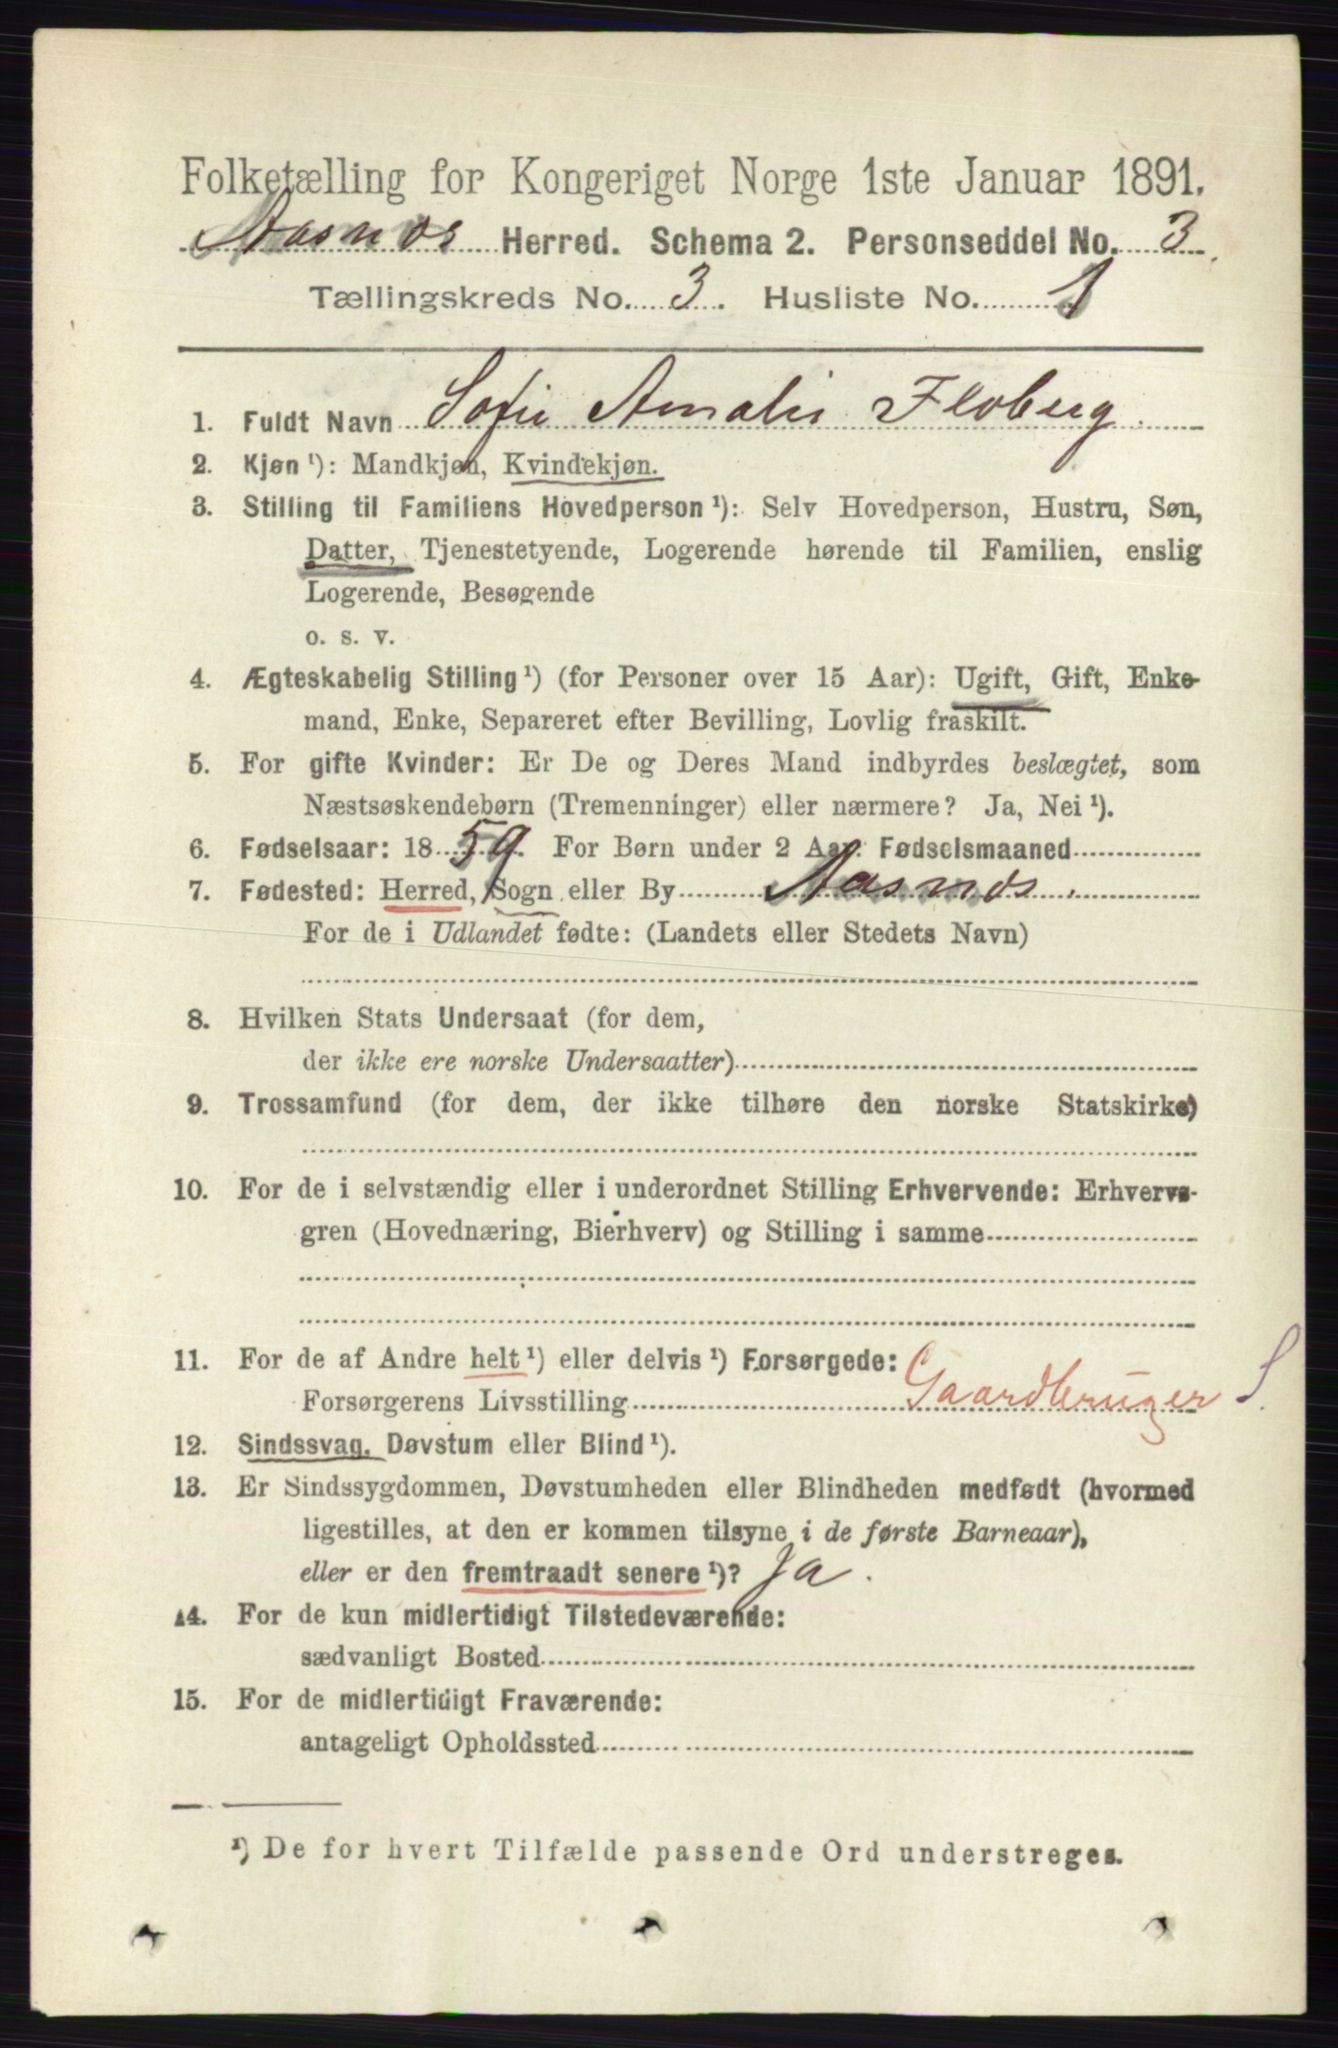 Folketælling for Kongeriget Norge 1ste Januar 1891.
Aasnes Herred. Schema 2. Personseddel No. 3
Tællingskreds No. 3. Husliste No. 1
1. Fuldt Navn Sofie Amalie Floberg.
2. Kjøn ¹): Mandkjøn, Kvindekjøn.
3. Stilling til Familiens Hovedperson ¹): Selv Hovedperson, Hustru, Søn,
Datter, Tjenestetyende, Logerende hørende til Familien, enslig
Logerende, Besøgende
o. s. v.
4. Ægteskabelig Stilling ¹) (for Personer over 15 Aar): Ugift, Gift, Enke-
mand, Enke, Separeret efter Bevilling, Lovlig fraskilt.
5. For gifte Kvinder: Er De og Deres Mand indbyrdes beslægtet, som
Næstsøskendebørn (Tremenninger) eller nærmere? Ja, Nei ¹).
6. Fødselsaar: 1859. For Børn under 2 Aar: Fødselsmaaned
7. Fødested: Herred, Sogn eller By Aasnes.
For de i Udlandet fødte: (Landets eller Stedets Navn)
8. Hvilken Stats Undersaat (for dem,
der ikke ere norske Undersaatter)
9. Trossamfund (for dem, der ikke tilhøre den norske Statskirke)
10. For de i selvstændig eller i underordnet Stilling Erhvervende: Erhvervs-
gren (Hovednæring, Bierhverv) og Stilling i samme
11. For de af Andre helt ¹) eller delvis ¹) Forsørgede:
Forsørgerens Livsstilling Gaardbruger S.
12. Sindssvag, Døvstum eller Blind ¹).
13. Er Sindssygdommen, Døvstumheden eller Blindheden medfødt (hvormed
ligestilles, at den er kommen tilsyne i de første Barneaar),
eller er den fremtraadt senere ¹)? Ja.
14. For de kun midlertidigt Tilstedeværende:
sædvanligt Bosted
15. For de midlertidigt Fraværende:
antageligt Opholdssted
¹) De for hvert Tilfælde passende Ord understreges.